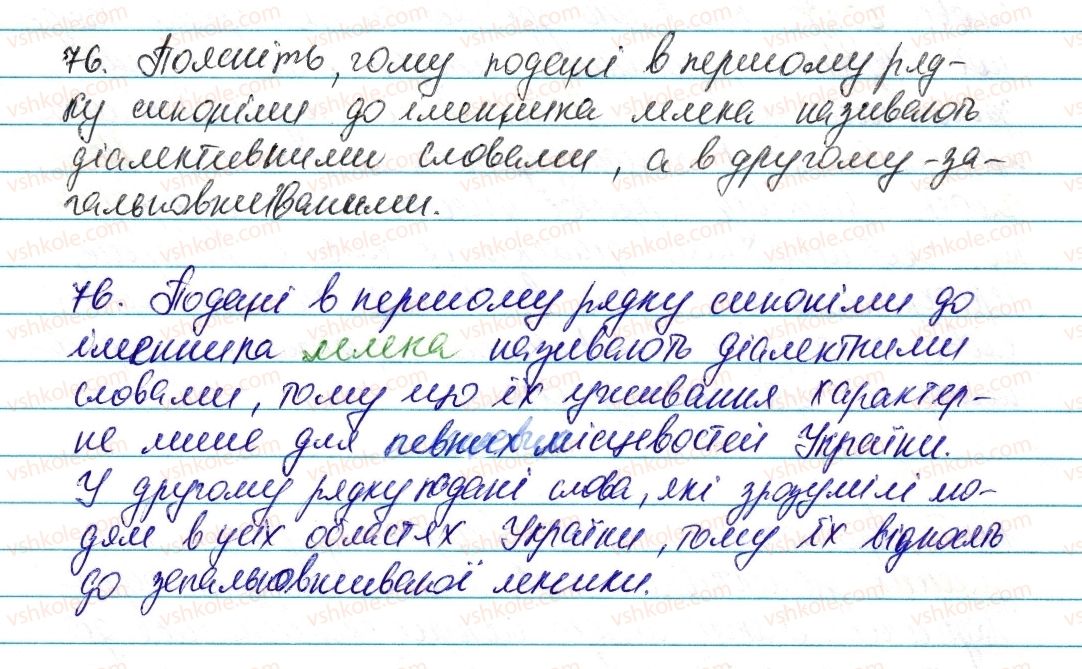 76. Поясніть, чому подані в першому ряд-
ку синоніми до іменника лелека називають
діалективними словами, а в другому - за-
гальновживаними.
76. Подані в першому рядку синоніми до
іменника лелека називають діалектними
словами, тому що їх уживання характер-
не лише для певних місцевостей України.
У другому рядку подані слова, які зрозумілі лю-
дям в усіх областях України, тому їх відносять
до загальновживаної лексики.